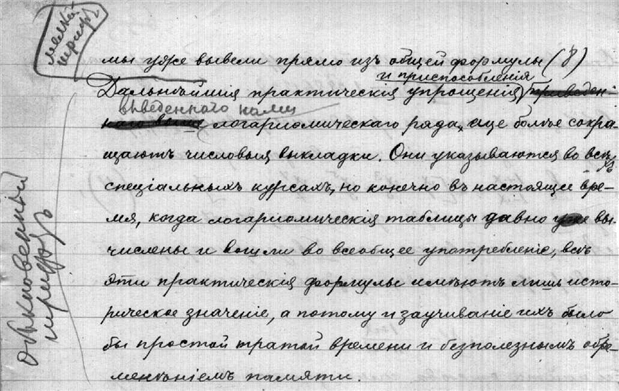 мелкій
шрифтъ
мы уже вывели прямо изъ общей формулы (γ)
и приспособленія
Дальнѣйшія практическія упрощенія
выведеннаго нами
логариѳмическаго ряда, еще болѣе сокра-
щаютъ числовыя выкладки. Они указываются во всѣхъ
спеціальныхъ курсахъ, но конечно въ настоящее вре-
мя, когда логариѳмическія таблицы давно уже вы-
числены и вошли во всеобщее употребленіе, всѣ
эти практическія формулы имѣютъ лишь исто-
рическое значеніе, а потому и заучиваніе ихъ было
бы простой тратой времени и безполезнымъ обре-
мененіемъ памяти.
обыкновенный
шрифтъ